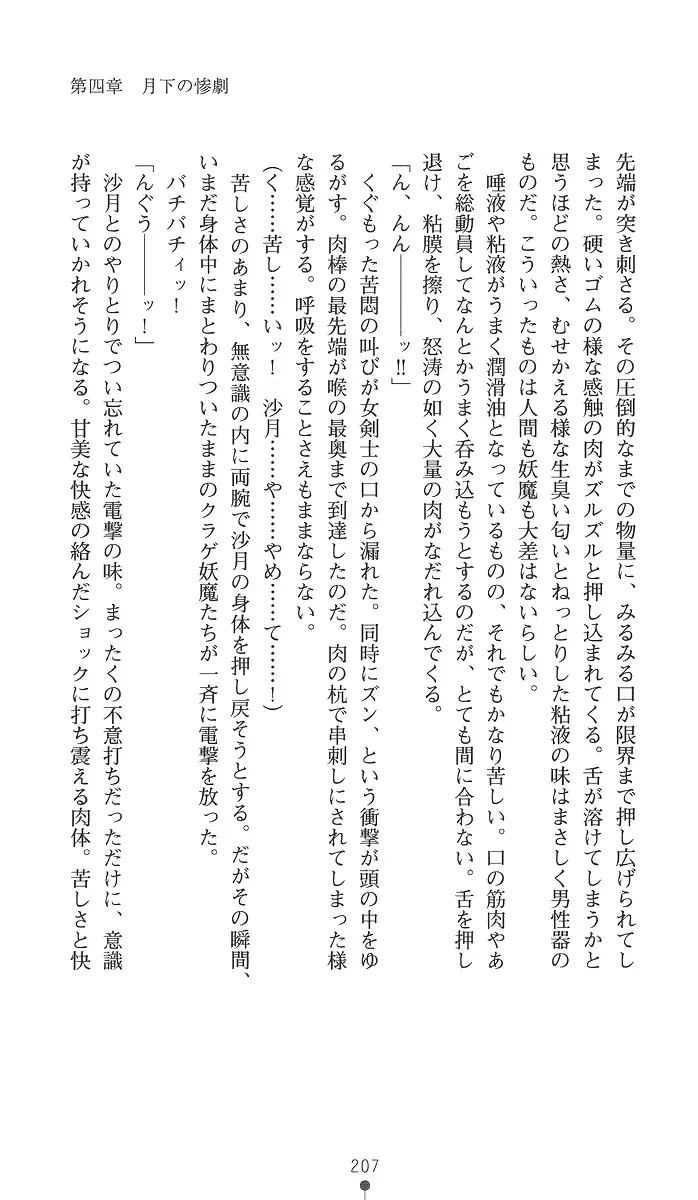 第四章　月下の惨劇
先端が突き刺さる。その圧倒的なまでの物量に、みるみる口が限界まで押し広げられてし
まった。硬いゴムの様な感触の肉がズルズルと押し込まれてくる。舌が溶けてしまうかと
思うほどの熱さ、むせかえる様な生臭い匂いとねっとりした粘液の味はまさしく男性器の
ものだ。こういったものは人間も妖魔も大差はないらしい。
　唾液や粘液がうまく潤滑油となっているものの、それでもかなり苦しい。口の筋肉やあ
ごを総動員してなんとかうまく呑み込もうとするのだが、とても間に合わない。舌を押し
退け、粘膜を擦り、怒涛の如く大量の肉がなだれ込んでくる。
「ん、んん―――ッ!!」
　くぐもった苦悶の叫びが女剣士の口から漏れた。同時にズン、という衝撃が頭の中をゆ
るがす。肉棒の最先端が喉の最奥まで到達したのだ。肉の杭で串刺しにされてしまった様
な感覚がする。呼吸をすることさえもままならない。
（く……苦し……いッ！　沙月……や……やめ……て……！）
　苦しさのあまり、無意識の内に両腕で沙月の身体を押し戻そうとする。だがその瞬間、
いまだ身体中にまとわりついたままのクラゲ妖魔たちが一斉に電撃を放った。
　バチバチィッ！
「んぐぅ―――ッ！」
　沙月とのやりとりでつい忘れていた電撃の味。まったくの不意打ちだっただけに、意識
が持っていかれそうになる。甘美な快感の絡んだショックに打ち震える肉体。苦しさと快
207